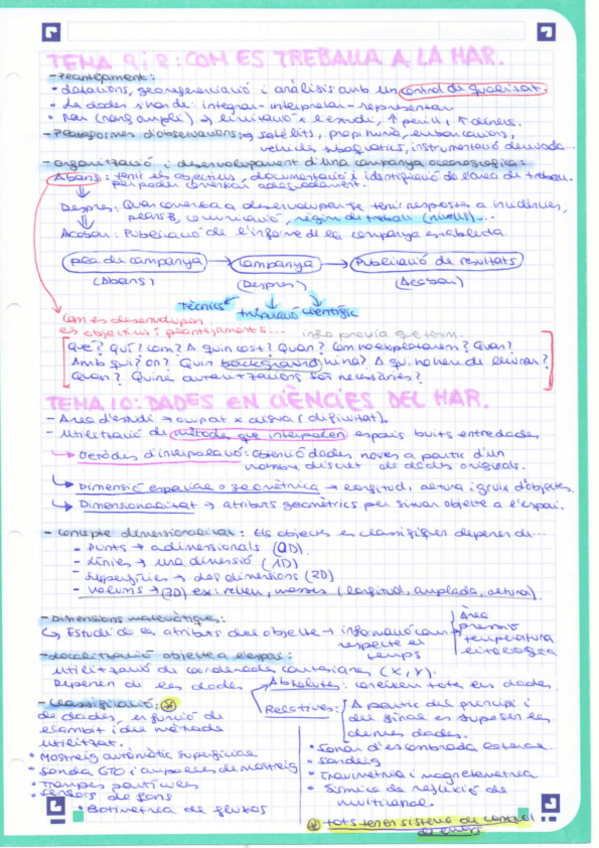 TEMA 9 i 2: COM ES TREBALLA A LA MAR.
- Plantejament:
• datacions, georeferenciació i anàlisis amb un control de qualitat.
• Les dades s'han de: integrar - interpretar - representar.
• Mar (rang ampli) → limitació x l'estudi, ↑ perill i ↑ diners.
- Plataformes d'observacions: → satèl·lits, prop nuria, embarcacions,
vehicles subaquàtics, instrumentació derivada...
- Organització i desenvolupament d'una campanya oceanogràfica:
Abans: tenir els objectius, documentació i identificació de l'àrea de treball
per poder començar adequadament.
Després: Quan comença a desenvolupar-se tenir respostes a incidències,
plans B, comunicació, règim de treball (nivells)...
Acabar: Publicació de l'informe de la campanya establerta
pla de campanya → Campanya → Publicació de resultats
(Abans) (Després) (Acabar)
Tècnics tripulació científic
Com es desenvolupen
els objectius i plantejaments... info prèvia que tenim...
Què? Quí? Com? A quin cost? Quan? Com ho explorarem? Quan?
Amb qui? On? Quin background hi ha? A qui ho hem de lliurar?
Quan? Quines autoritzacions són necessàries?
TEMA 10: DADES EN CIÈNCIES DEL MAR.
- Àrea d'estudi → ocupat x aigua (definitat).
- Utilització de mètodes que interpolen espais buits entre dades
→ Mètodes d'interpolació: obtenció dades noves a partir d'un
nombre discret de dades originals.
→ Dimensió espacial o geomètrica → longitud, altura i gruix d'objectes.
→ Dimensionalitat → atributs geomètrics per situar objecte a l'espai.
- Concepte dimensionalitat: Els objectes es classifiquen depenen de...
- Punts → adimensionals (0D).
- Línies → una dimensió (1D)
- Superfícies → dos dimensions (2D)
- Volums → (3D) ex: relleu, masses (longitud, amplada, altura).
- Dimensions matemàtiques:
↳ Estudi de les atributs dels objecte → informació com respecte el temps
Àrea
pressió
temperatura
litològica
- Localització objecte a l'espai:
Utilització de coordenades cartesianes (X, Y).
Depenen de les dades
Absolutes: coneixen totes les dades.
Relatives: A partir del principi i
del final es suposen les
demés dades.
- Classificació:
de dades, en funció de
l'àmbit i del mètode
utilitzat.
• Mostreig automàtic superficial
• Sonda CTD i ampolles de mostreig
• Trampes partícules
• Sensors de fons
• Batimetria de fluxos
• Sonar d'escombrada lateral
• Sondeig
• Gravimetria i magnetometria
• Sísmica de reflexió de
multicanal.
tots tenen sistema de control
de errors